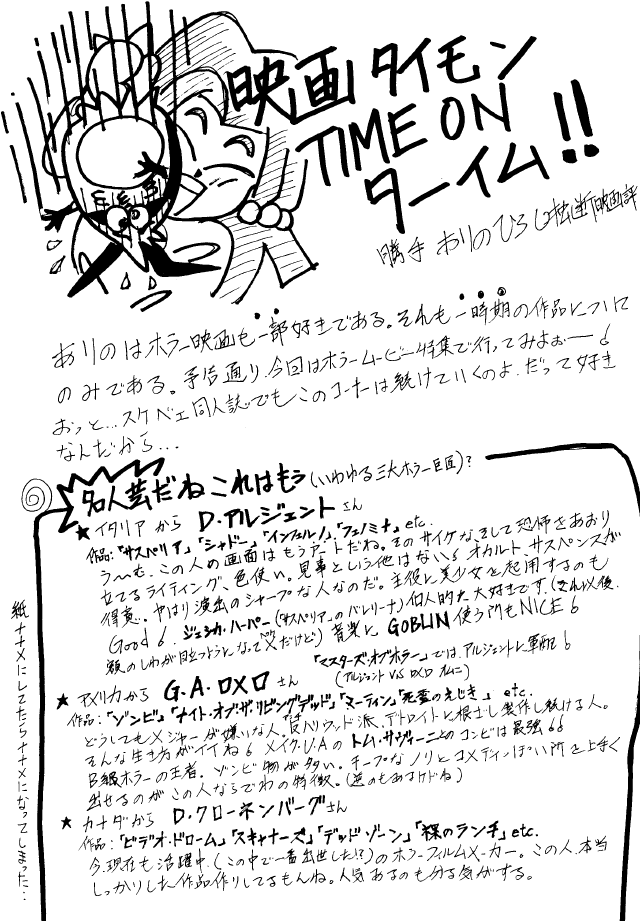 映画タイモン
TIME ON
ターイム!!
勝手 ありのひろし 独断映画評
ありのはホラー映画も一部好きである。それも一時期の作品について
のみである。予告通り、今回はホラームービー特集で行ってみよぉーー!
おっと…スケベェ同人誌でもこのコーナーは続けていくのよ、だって好き
なんだから…
名人芸だね これはもう(いわゆる三大ホラー巨匠)?
★イタリアから D・アルジェントさん
作品:「サスペリア」「シャドー」「インフェルノ」「フェノミナ」etc.
う〜む、この人の画面はもうアートだね。そのサイケな、そして恐怖をあおり
立てるライティング、色使い。見事という他はない! オカルト、サスペンスが
得意。やはり演出のシャープな人なのだ。主役に美少女を起用するのも
Good! ジェシカ・ハーパー(「サスペリア」のバレリーナ)個人的に大好きです。(それ以後、
額のしわが目立つようになってダメだけど) 音楽に GOBLIN 使う所もNICE!
「マスターズ・オブ・ホラー」では、アルジェントに軍配!
(アルジェント VS ロメロ オムニ)
★アメリカから G.A.ロメロ さん
作品:「ゾンビ」「ナイト・オブ・ザ・リビングデッド」「マーティン」「死霊のえじき」etc.
どうしてもメジャーが嫌いな人。反ハリウッド派、デトロイトに根ざし製作し続ける人。
そんな生き方がイイね! メイクU.Aのトム・サヴィーニとのコンビは最強!!
B級ホラーの王者、ゾンビ物が多い。チープなノリとコメディっぽい所を上手く
出せるのがこの人ならでわの特徴。(逆のもあるケドね)
★カナダから D.クローネンバーグさん
作品:「ビデオ・ドローム」「スキャナーズ」「デッドゾーン」「裸のランチ」etc.
今現在も活躍中。(この中で一番出世した!?)のホラーフィルムメーカー。この人、本当
しっかりした作品作りしてるもんね。人気あるのも分る気がする。
紙ナナメにしてたらナナメになってしまった…